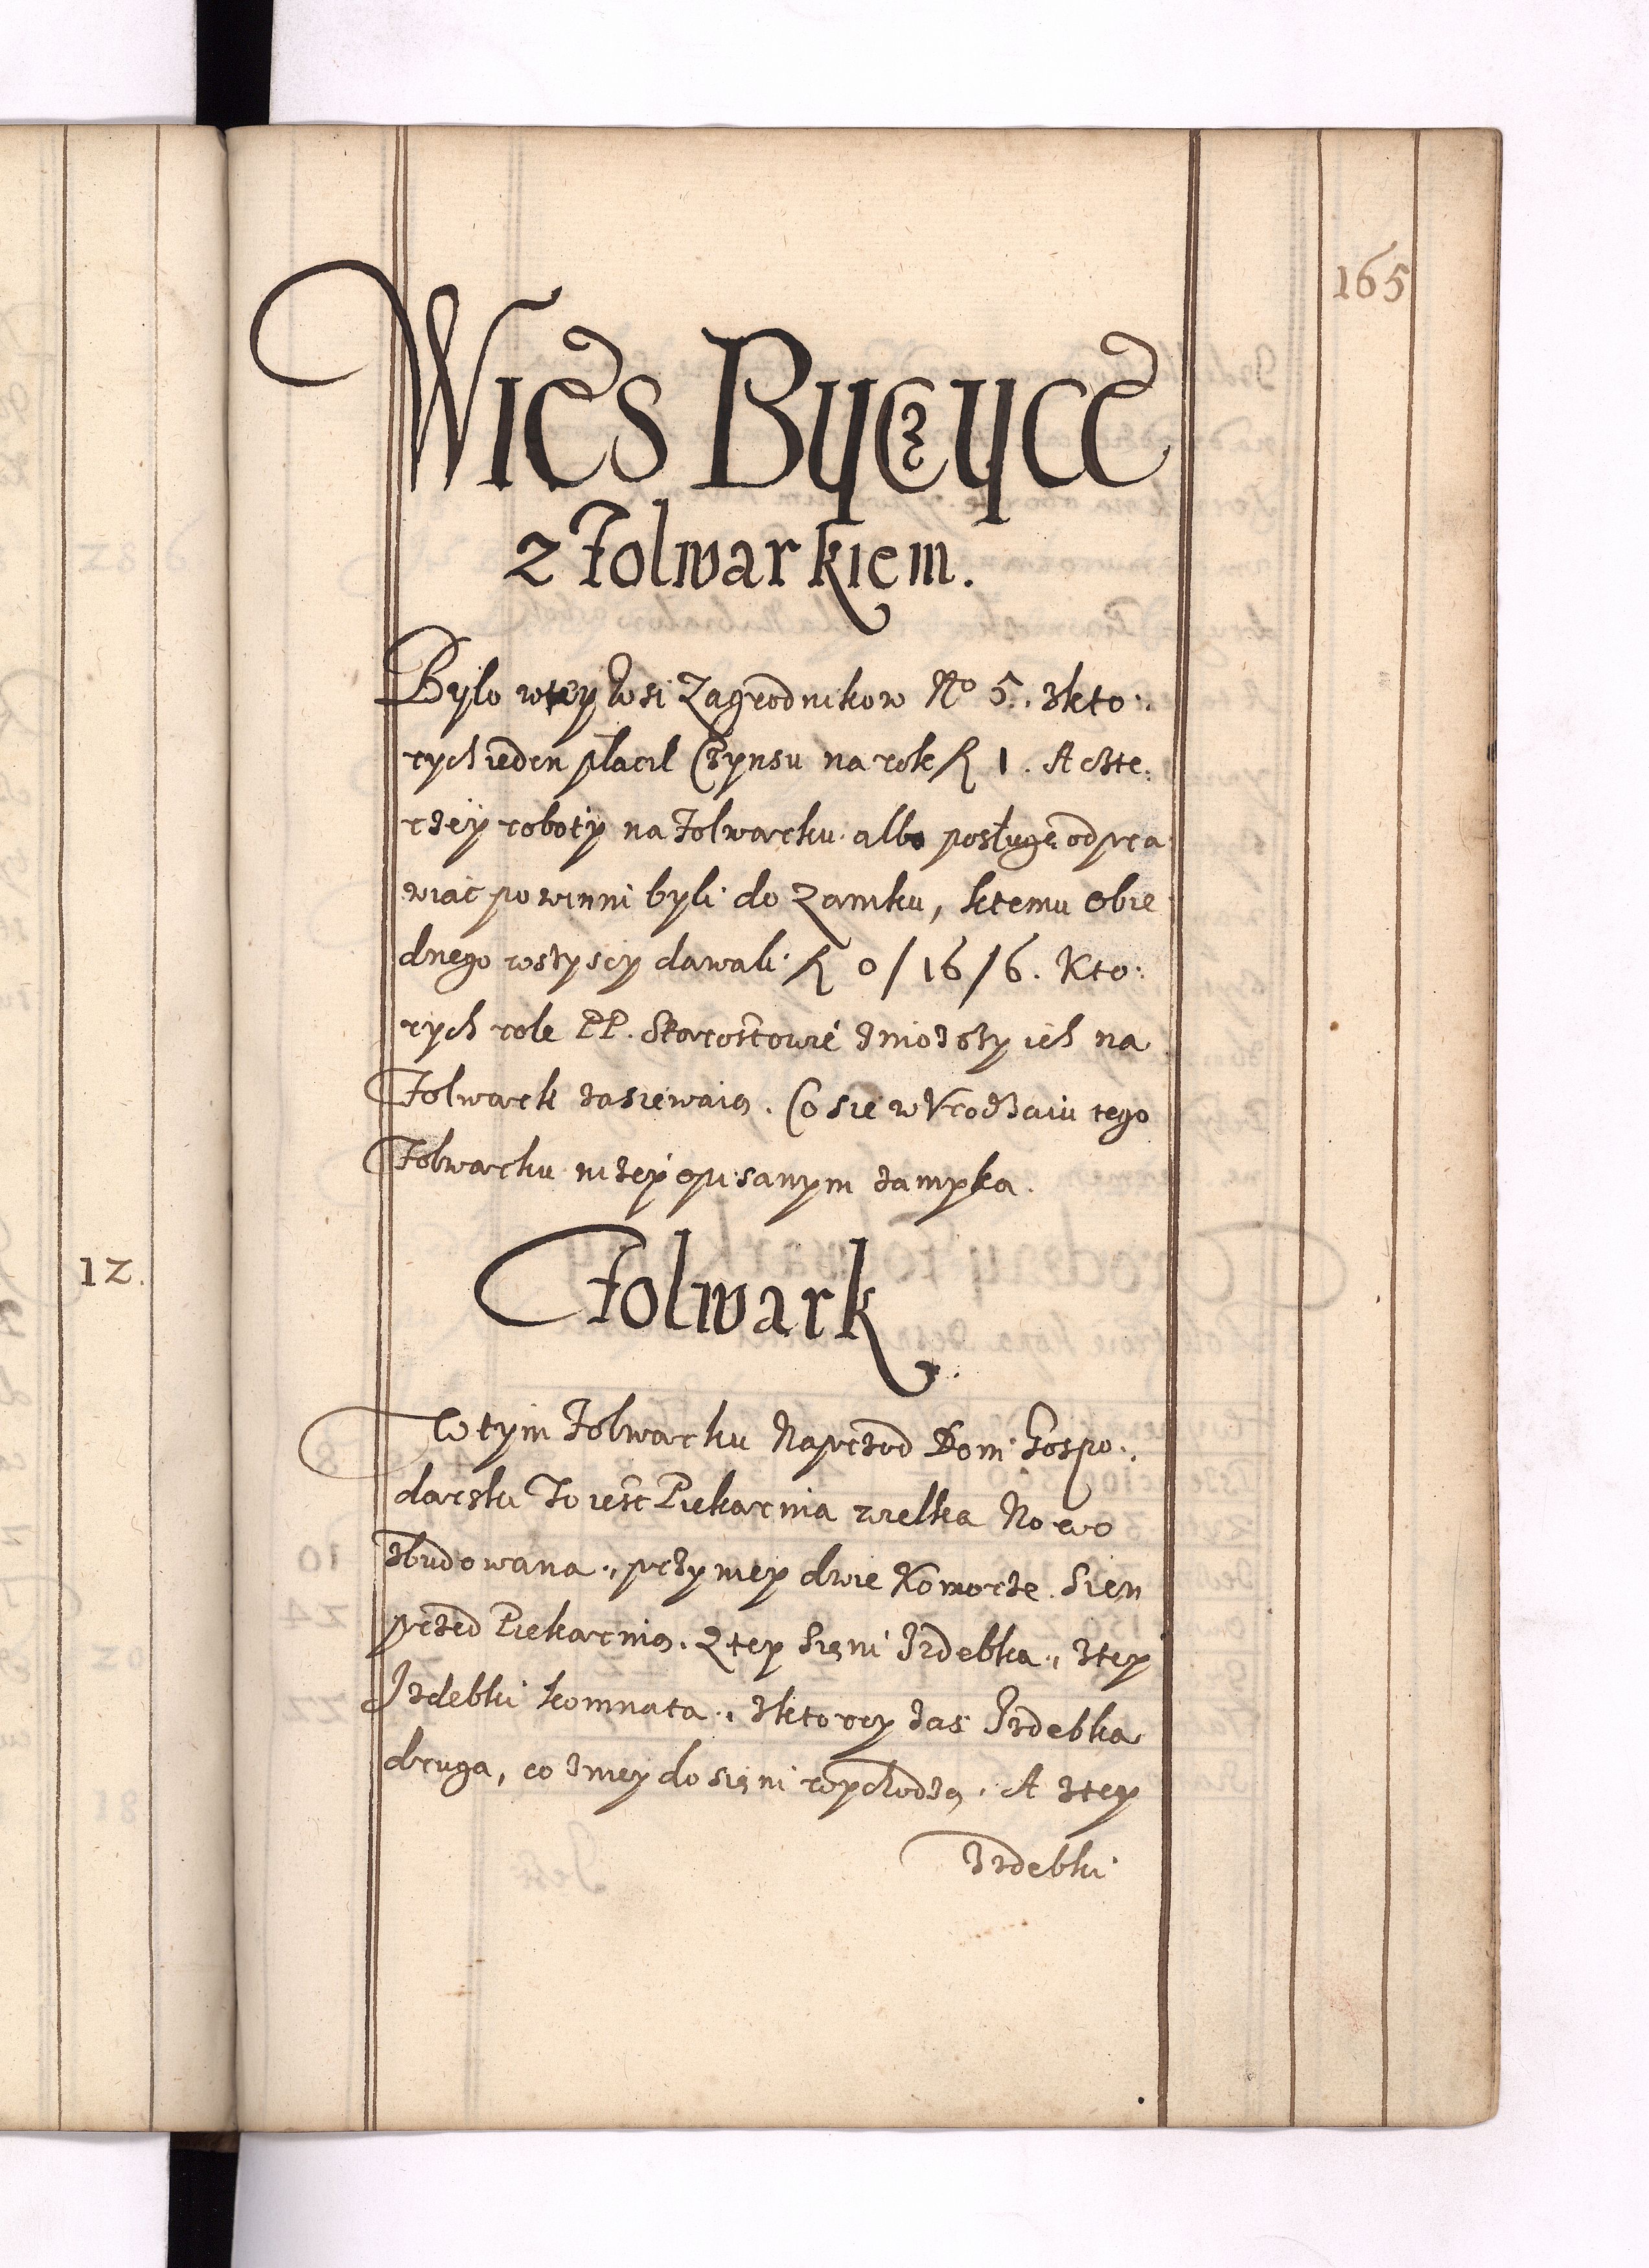 165
Wies Byczyce
z Folwarkiem.
Bylo wtey Wsi Zagrodnikow No 5. zkto:
rych ieden placil Czynsu na rok fl 1. A czte:
rzey roboty na Folwarku albo posługę odpra
wiac powinni byli do Zamku, ktemu Obie
dnego wszyscy dawali fl 0/16/6. Kto:
rych role PP. Starostowie zniozszy ich na
Folwark zasiewaią. Co sie w Vrodzaiu tego
Folwarku nizey opisanym zamyka.
Folwark
W tym Folwarku Naprzod Dom Gospo:
darski To iest Piekarnia wielka Nowo
zbudowana, przy niey dwie Komorze. Sien
przed Piekarnią. Z tey Sięni Izdebka, z tey
Izdebki komnata, zktorey zas Izdebka
druga, co z niey do sięni wychodzą. A z tey
Izdebki
12.